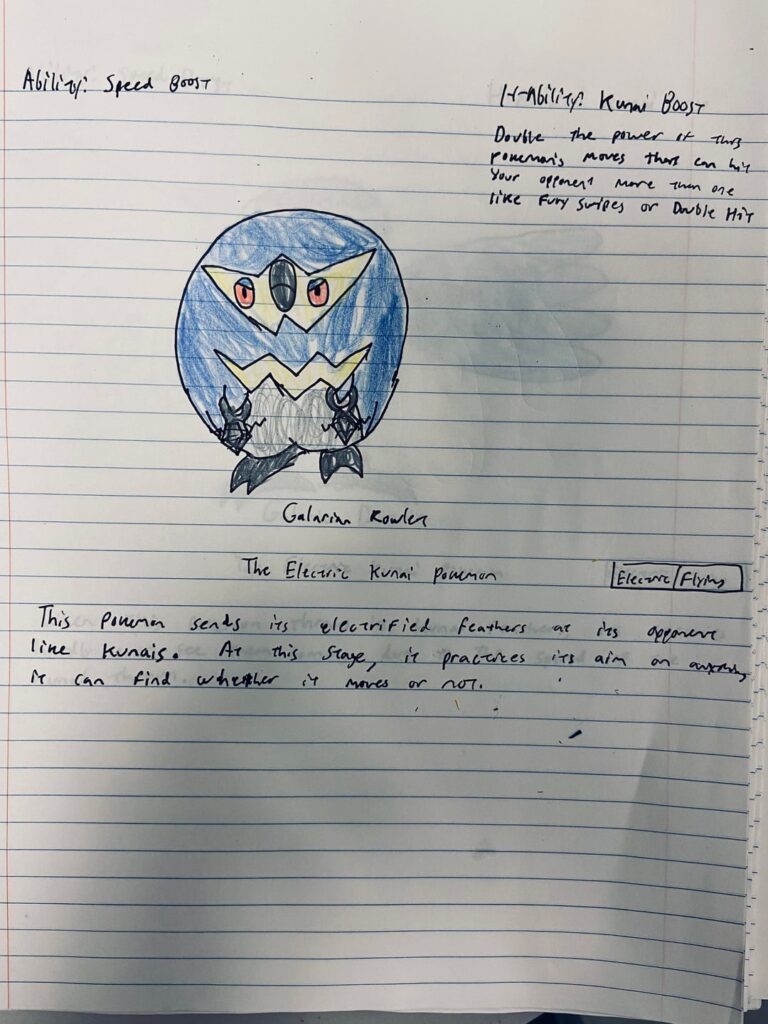 Ability: Speed Boost
H-Ability: Kunai Boost
Double the power of this
pokemon's moves thats can hit
your opponent more then one
like Fury Swipes or Double Hit
Galarian Rowlet
The Electric Kunai Pokemon
Electric Flying
This Pokemon sends its electrified feathers at its opponent
like Kunais. At this stage, it practices its aim on anything
it can find whether it moves or not.